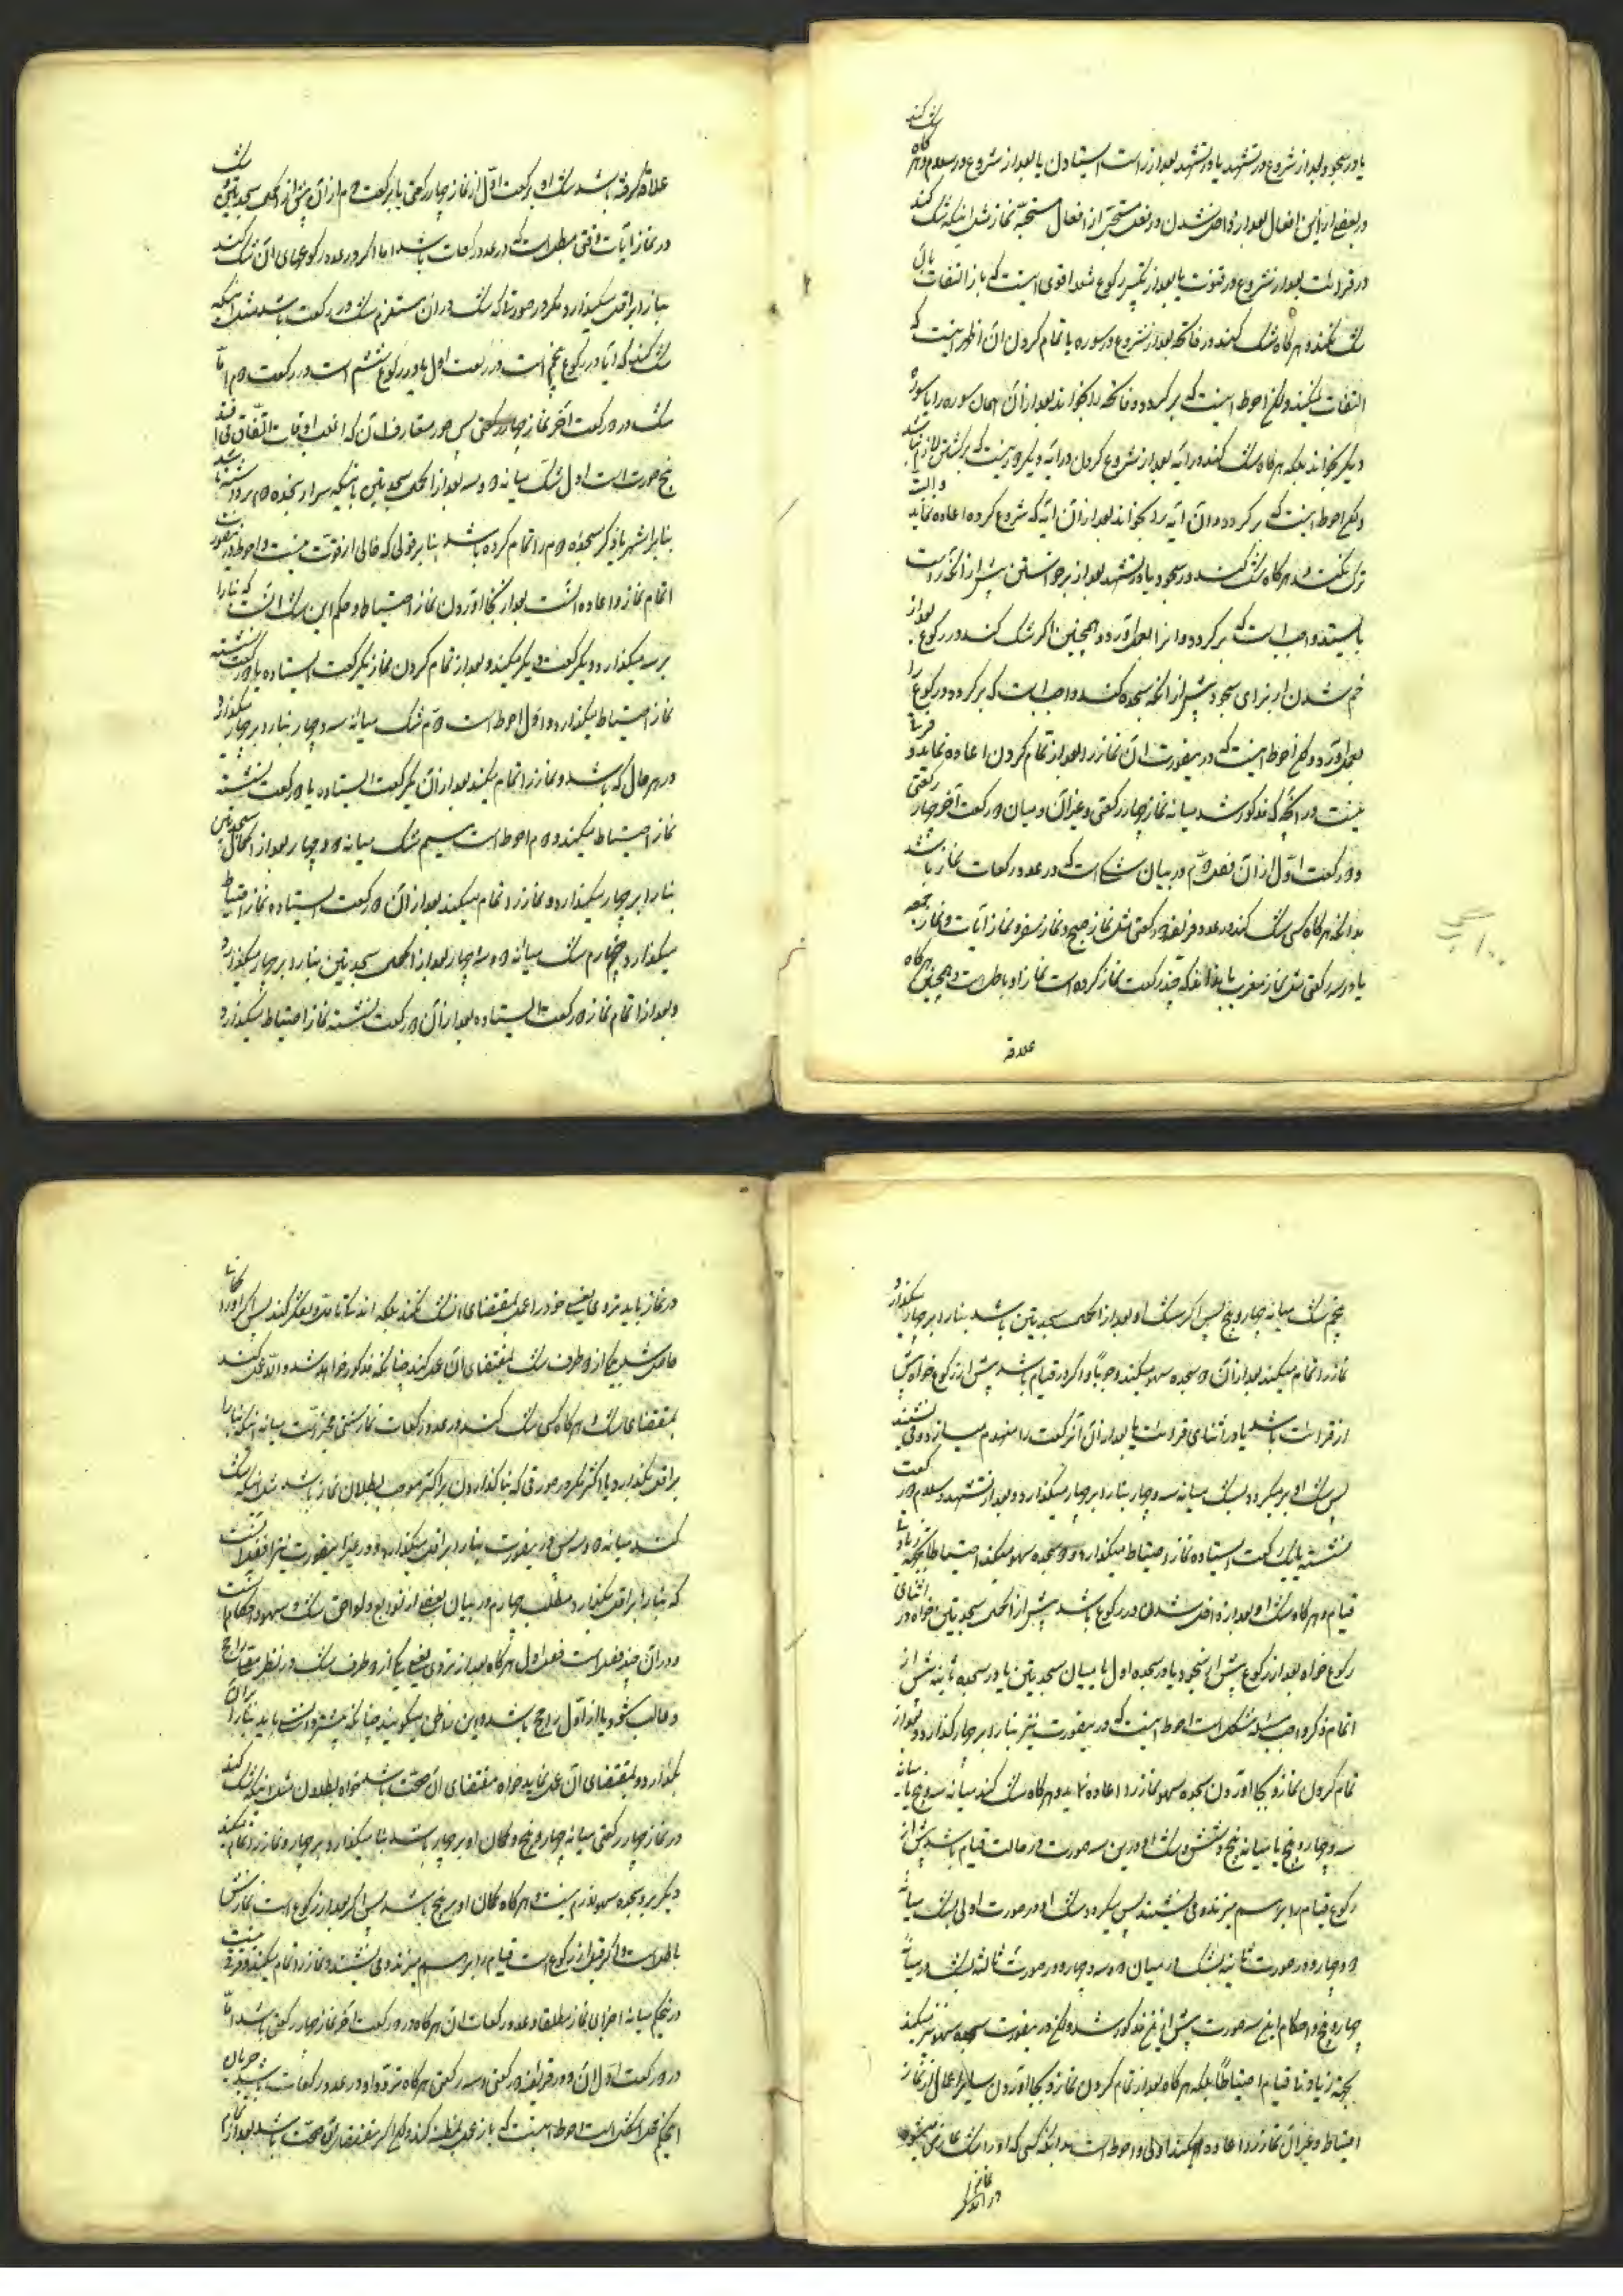 یا در سجود بعد از شروع در تشهد یا در تشهد بعد از راست ایستادن یا بعد از شروع در سلام و هرگاه شک کند
در بعضی از این افعال بعد از داخل شدن در فعل مستحبی از افعال مستحبه نماز مثل اینکه شک کند
در قرائت بعد از شروع در قنوت یا بعد از تکبیر رکوع اقوی اینست که باز التفات بان
شک نکند و هرگاه شک کند در فاتحه بعد از شروع در سوره یا تمام کردن آن اظهر اینست که
التفات نکند ولیکن احوط اینست که برگردد و فاتحه را بخواند بعد از آن همان سوره را یا سوره
دیگر بخواند بلکه هرگاه شک کند در آیه بعد از شروع کردن در آیه دیگر
و احوط اینست که برگردد و آن آیه را بخواند بعد از آن آیه که شروع کرده اعاده نماید
و هرگاه شک کند در سجود یا در تشهد بعد از برخواستن پیش از آنکه راست
بایستد واجب است که برگردد و آنرا بعمل آورد و همچنین اگر شک کند در رکوع بعد از
خم شدن از برای سجود پیش از آنکه سجده کند واجب است که برگردد و رکوع را
بعمل آورد و احوط اینست که در اینصورت آن نماز را بعد از تمام کردن اعاده نماید و فرقی
نیست در آنچه مذکور شد میانه نماز چهار رکعتی و غیر آن و میان دو رکعت آخر چهار رکعتی
و دو رکعت اول از آن فصل دوم در بیان شکی است که در عدد رکعات نماز باشد
بدانکه هرگاه کسی شک کند در عدد فریضه دو رکعتی مثل نماز صبح و نماز سفر و نماز آیات و نماز جمعه
یا در سه رکعتی مثل نماز مغرب یا نداند که چند رکعت نماز کرده است نماز او باطل است و همچنین هرگاه
علاقه
علاقه گرفته باشد شک او برکعت اول از نماز چهار رکعتی یا برکعت دوم از آن پیش از اکمال سجدتین و شک
در نماز آیات وقتی مبطل است که در عدد رکعات باشد اما اگر در عدد رکوعهای آن شک کند
بنا را بر اقل میگذارد مگر در صورتی که شک در آن مستلزم شک در رکعت باشد مثل اینکه
شک کند که آیا در رکوع پنجم است در رکعت اول یا در رکوع ششم است در رکعت دوم اما
شک در دو رکعت آخر نماز چهار رکعتی پس صور متعارف آن که اغلب اوقات اتفاق می افتد
پنج صورت است اول شک میانه دو و سه بعد از اکمال سجدتین باینکه سر از سجده دوم برداشته باشد
بنابر اشهر یا ذکر سجده دوم را تمام کرده باشد بنابر قولی که خالی از قوت نیست و احوط در اینصورت
اتمام نماز و اعاده آنست بعد از بجا آوردن نماز احتیاط و حکم این شک آنست که بنا را
بر سه میگذارد و یکرکعت دیگر میکند و بعد از تمام کردن نماز یکرکعت ایستاده یا دو رکعت نشسته
نماز احتیاط میگذارد و اول احوط است دوم شک میانه سه و چهار بنا را بر چهار میگذارد
در هر حال که باشد و نماز را تمام میکند بعد از آن یکرکعت ایستاده یا دو رکعت نشسته
نماز احتیاط میکند و دوم احوط است سیم شک میانه دو و چهار بعد از اکمال سجدتین
بنا را بر چهار میگذارد و نماز را تمام میکند بعد از آن دو رکعت ایستاده نماز احتیاط
میگذارد چهارم شک میانه دو و سه و چهار بعد از اکمال سجدتین بنا را بر چهار میگذارد
و بعد از اتمام نماز دو رکعت ایستاده بعد از آن دو رکعت نشسته نماز احتیاط میگذارد
پنجم شک میانه چهار و پنج پس اگر شک او بعد از اکمال سجدتین باشد بنا را بر چهار میگذارد و
نماز را تمام میکند بعد از آن دو سجده سهو میکند وجوباً و اگر در قیام باشد پیش از رکوع خواه پیش
از قرائت باشد یا در اثنای قرائت یا بعد از آن آنرکعت را منهدم میسازد و می نشیند
پس شک او برمیگردد بشک میانه سه و چهار بنا را بر چهار میگذارد و بعد از تشهد و سلام دو رکعت
نشسته یا یک رکعت ایستاده نماز احتیاط میگذارد و دو سجده سهو میکند احتیاطا بجهة زیادتی
قیام و هرگاه شک او بعد از داخل شدن در رکوع باشد پیش از اکمال سجدتین خواه در اثنای
رکوع خواه بعد از رکوع پیش از سجود یا در سجده اول یا میان سجدتین یا در سجده ثانیه پیش از
اتمام ذکر واجب مسئله مشکل است احوط اینست که در اینصورت نیز بنا را بر چهار گذارد و بعد از
تمام کردن نماز و بجا آوردن سجده سهو نماز را اعاده نماید و هرگاه شک کند میانه سه و پنج یا میانه
سه و چهار و پنج یا میانه پنج و شش و شک او در این سه صورت در حالت قیام باشد پیش از
رکوع قیام را بر هم میزند و می نشیند پس میگردد شک او در صورت اولی بشک میانه
دو و چهار و در صورت ثانیه بشک در میان دو و سه و چهار و در صورت ثالثه بشک در میانه
چهار و پنج و احکام این سه صورت پیش از این مذکور شد ولیکن در اینصورت سجده سهو نیز میکند
بجهة زیادتی قیام احتیاطاً بلکه هرگاه بعد از تمام کردن نماز و بجا آوردن سایر اعمال از نماز
احتیاط و غیر آن نماز را اعاده کند اولی و احوط است بدانکه کسی که او را شک عارض میشود
در نماز باید تروی یعنی خود را عمل بمقتضای آن شک نکند بلکه اندک تامل و تفکر کند پس اگر او را گمان
حاصل شد بیکی از دو طرف شک بمقتضای آن عمل کند چنانکه مذکور خواهد شد و الا عمل کند
بمقتضای شک و هرگاه کسی شک کند در عدد رکعات نماز سنتی مخیر است میانه اینکه بنا را
بر اقل بگذارد یا اکثر مگر در صورتی که بنا گذاردن بر اکثر موجب بطلان نماز باشد مثل اینکه شک
کند میانه دو و سه پس در اینصورت بنا را بر اقل میگذارد و در غیر اینصورت نیز افضل آنست
که بنا را بر اقل بگذارد مطلب چهارم در بیان بعضی از توابع و لواحق شک و سهو و احکام آنست
و در آن چند فصل است فصل اول هرگاه بعد از تروی یعنی یکی از دو طرف شک در نظر مصلی راجح
و غالب شود یا از اول راجح باشد و این را ظن میگویند چنانکه پیشتر دانستی باید بنا را بر آن
بگذارد و بمقتضای آن عمل نماید خواه مقتضای آن صحت باشد خواه بطلان مثل اینکه شک کند
در نماز چهار رکعتی میانه چهار و پنج و گمان او بر چهار باشد بنا میگذارد بر چهار و نماز را تمام میکند
دیگر بر او سجده سهو لازم نیست و هرگاه گمان او بر پنج باشد پس اگر بعد از رکوع است نمازش
باطل است و اگر قبل از رکوع است قیام را بر هم میزند و می نشیند و نماز را تمام میکند و فرق نیست
در این حکم میانه اجزای نماز مطلقا و عدد رکعات آن هرگاه در دو رکعت آخر نماز چهار رکعتی باشد اما
در دو رکعت اول آن و در فریضه دو رکعتی و سه رکعتی هرگاه تردد او در عدد رکعات باشد جریان
این حکم محل اشکال است احوط اینست که باز عمل بمظنه کند ولیکن اگر مقتضای آن صحت باشد بعد از